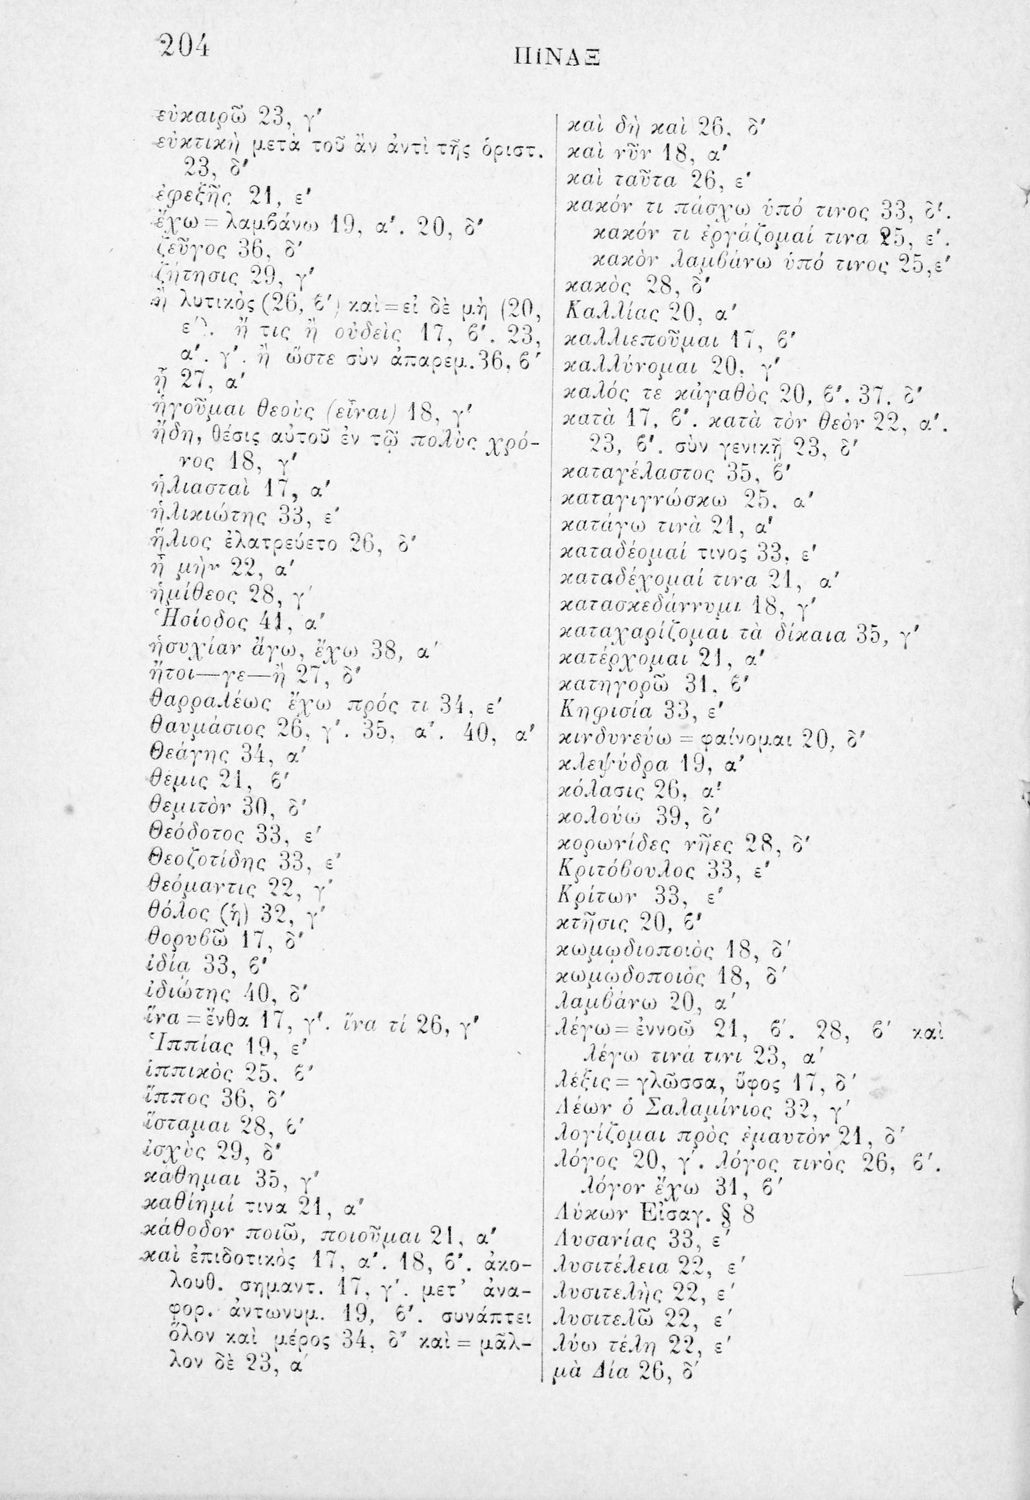 204
ΠΙΝΑΞ
εὐκαιρῶ 23, γ′
εὐκτικὴ μετὰ τοῦ ἂν ἀντὶ τῆς ὁριστ.
23, δ′
ἐφεξῆς 21, ε′
ἔχω = λαμβάνω 19, α′. 20, δ′
ζεῦγος 36, δ′
ζήτησις 29, γ′
ἢ λυτικὸς (26, ϐ′) καὶ = εἰ δὲ μὴ (20,
ε′). ἤ τις ἢ οὐδεὶς 17, ϐ′. 23,
α′. γ′. ἢ ὥστε σὺν ἀπαρεμ. 36, ϐ′
ᾗ 27, α′
ἡγοῦμαι θεοὺς (εἶναι) 18, γ′
ἤδη, θέσις αὐτοῦ ἐν τῷ πολὺς χρό-
νος 18, γ′
ἡλιασταὶ 17, α′
ἡλικιώτης 33, ε′
ἥλιος ἐλατρεύετο 26, δ′
ἦ μὴν 22, α′
ἡμίθεος 28, γ′
Ἡσίοδος 41, α′
ἡσυχίαν ἄγω, ἔχω 38, α′
ἤτοι—γε—ἢ 27, δ′
θαρραλέως ἔχω πρός τι 34, ε′
θαυμάσιος 26, γ′. 35, α′. 40, α′
Θεάγης 34, α′
θέμις 21, ϐ′
θεμιτὸν 30, δ′
Θεόδοτος 33, ε′
Θεοζοτίδης 33, ε′
θεόμαντις 22, γ′
θόλος (ἡ) 32, γ′
θορυϐῶ 17, δ′
ἰδίᾳ 33, ϐ′
ἰδιώτης 40, δ′
ἵνα = ἔνθα 17, γ′. ἵνα τί 26, γ′
Ἱππίας 19, ε′
ἱππικὸς 25, ϐ′
ἵππος 36, δ′
ἵσταμαι 28, ϐ′
ἰσχὺς 29, δ′
κάθημαι 35, γ′
καθίημί τινα 21, α′
κάθοδον ποιῶ, ποιοῦμαι 21, α′
καὶ ἐπιδοτικὸς 17, α′. 18, ϐ′. ἀκο-
λουθ. σημαντ. 17, γ′. μετ’ ἀνα-
φορ. ἀντωνυμ. 19, ϐ′. συνάπτει
ὅλον καὶ μέρος 34, δ′ καὶ = μᾶλ-
λον δὲ 23, α′
καὶ δὴ καὶ 26, δ′
καὶ νῦν 18, α′
καὶ ταῦτα 26, ε′
κακόν τι πάσχω ὑπό τινος 33, δ′.
κακόν τι ἐργάζομαί τινα 25, ε′.
κακὸν λαμϐάνω ὑπό τινος 25,ε′
κακὸς 28, δ′
Καλλίας 20, α′
καλλιεποῦμαι 17, ϐ′
καλλύνομαι 20, γ′
καλός τε κἀγαθὸς 20, ϐ′. 37, δ′
κατὰ 17, ϐ′. κατὰ τὸν θεὸν 22, α′.
23, ϐ′. σὺν γενικῇ 23, δ′
καταγέλαστος 35, ϐ′
καταγιγνώσκω 25, α′
κατάγω τινὰ 21, α′
καταδέομαί τινος 33, ε′
καταδέχομαί τινα 21, α′
κατασκεδάννυμι 18, γ′
καταχαρίζομαι τὰ δίκαια 35, γ′
κατέρχομαι 21, α′
κατηγορῶ 31, ϐ′
Κηφισία 33, ε′
κινδυνεύω = φαίνομαι 20, δ′
κλεψύδρα 19, α′
κόλασις 26, α′
κολούω 39, δ′
κορωνίδες νῆες 28, δ′
Κριτόϐουλος 33, ε′
Κρίτων 33, ε′
κτῆσις 20, ϐ′
κωμῳδιοποιὸς 18, δ′
κωμῳδοποιὸς 18, δ′
λαμϐάνω 20, α′
λέγω = ἐννοῶ 21, ϐ′. 28, ϐ′ καὶ
λέγω τινά τινι 23, α′
λέξις = γλῶσσα, ὕφος 17, δ′
Λέων ὁ Σαλαμίνιος 32, γ′
λογίζομαι πρὸς ἐμαυτὸν 21, δ′
λόγος 20, γ′. λόγος τινὸς 26, ϐ′.
λόγον ἔχω 31, ϐ′
Λύκων Εἰσαγ. § 8
Λυσανίας 33, ε′
λυσιτέλεια 22, ε′
λυσιτελὴς 22, ε′
λυσιτελῶ 22, ε′
λύω τέλη 22, ε′
μὰ Δία 26, δ′